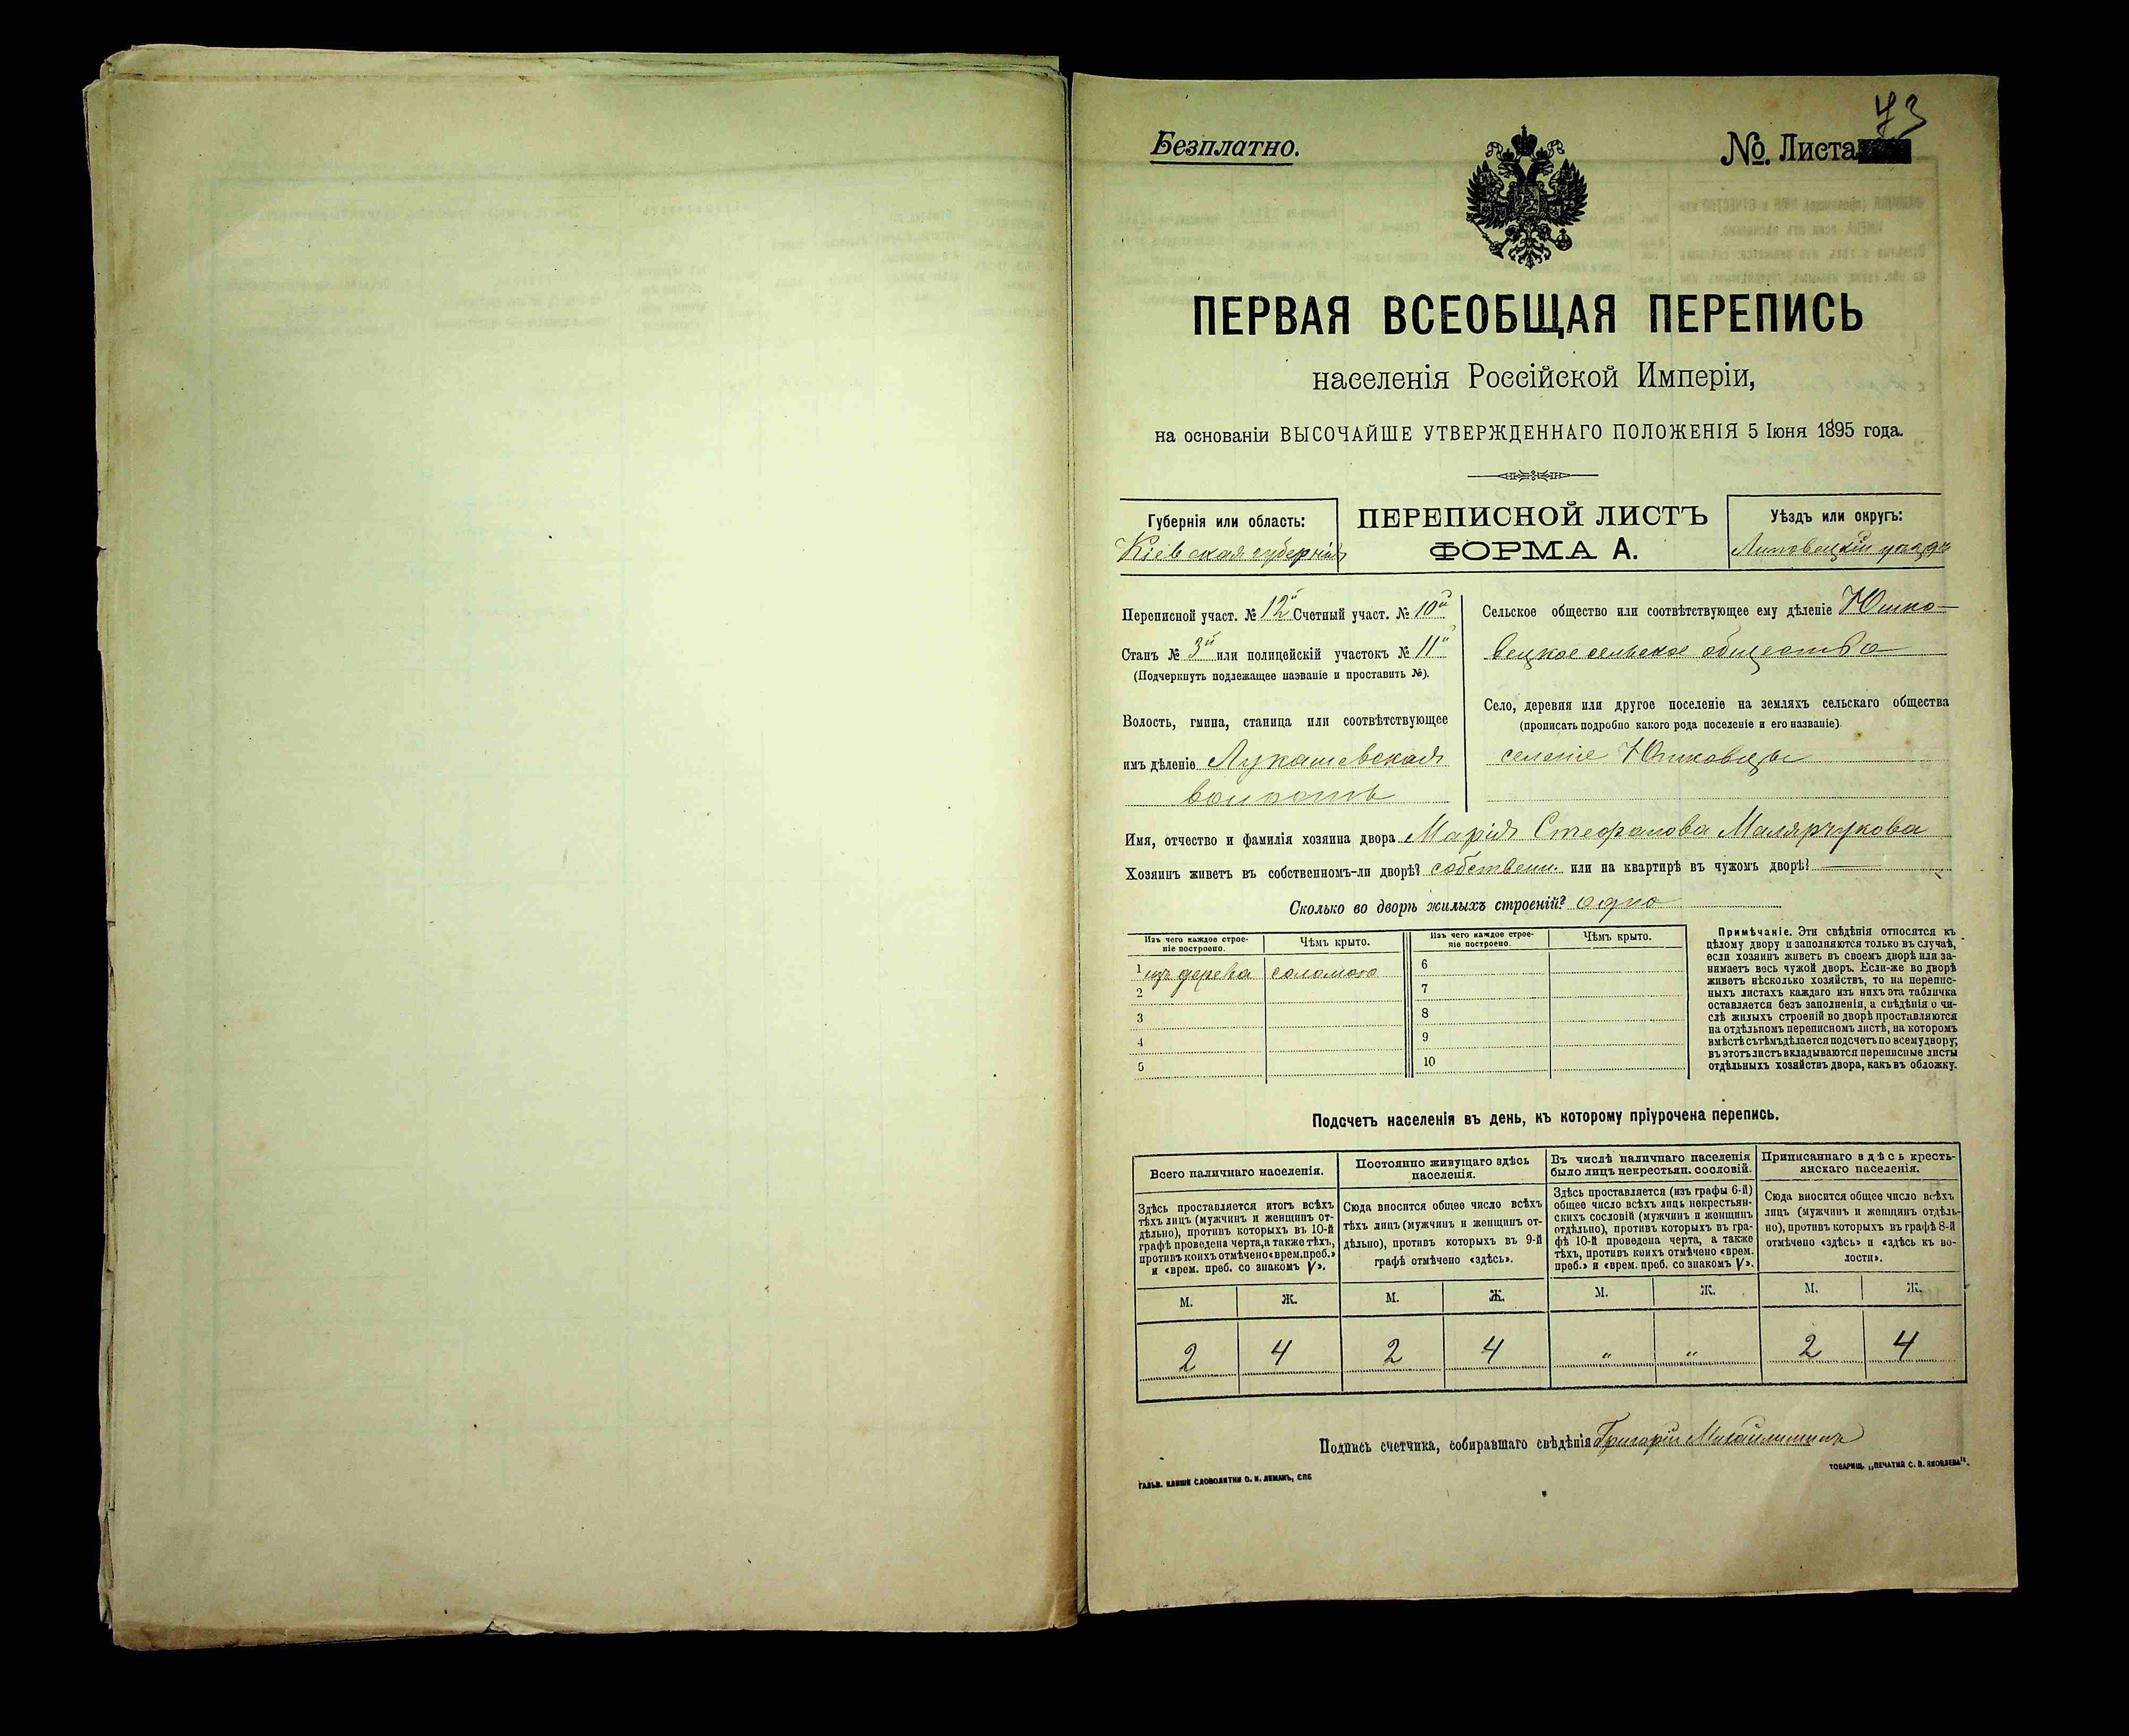 73
Безплатно.
№. Листа
ПЕРВАЯ ВСЕОБЩАЯ ПЕРЕПИСЬ
населенія Россійской Имперіи,
на основаніи ВЫСОЧАЙШЕ УТВЕРЖДЕННАГО ПОЛОЖЕНІЯ 5 Іюня 1895 года.
Губернія или область:
Кіевская губернія
ПЕРЕПИСНОЙ ЛИСТЪ
ФОРМА А.
Уѣздъ или округъ:
Липовецкій уѣздъ
Переписной участ. № 12й Счетный участ. № 10й
Станъ № 3й или полицейскій участокъ № 11й
(Подчеркнуть подлежащее названіе и проставить №).
Волость, гмина, станица или соотвѣтствующее
имъ дѣленіе Лукашевская
волость
Сельское общество или соотвѣтствующее ему дѣленіе Юшко-
вецкое сельское общество
Село, деревня или другое поселеніе на земляхъ сельскаго общества
(прописать подробно какого рода поселеніе и его названіе).
селеніе Юшковцы
Имя, отчество и фамилія хозяина двора Марія Стефанова Малярчукова
Хозяинъ живетъ въ собственномъ-ли дворѣ? собственн. или на квартирѣ въ чужомъ дворѣ? —
Сколько во дворѣ жилыхъ строеній? одно
Изъ чего каждое строе-
ніе построено.
Чѣмъ крыто.
Изъ чего каждое строе-
ніе построено.
Чѣмъ крыто.
1 изъ дерева соломою
2
3
4
5
6
7
8
9
10
Примѣчаніе. Эти свѣдѣнія относятся къ
цѣлому двору и заполняются только въ случаѣ,
если хозяинъ живетъ въ своемъ дворѣ или за-
нимаетъ весь чужой дворъ. Если-же во дворѣ
живетъ нѣсколько хозяйствъ, то на перепис-
ныхъ листахъ каждаго изъ нихъ эта табличка
оставляется безъ заполненія, а свѣдѣнія о чи-
слѣ жилыхъ строеній во дворѣ проставляются
на отдѣльномъ переписномъ листѣ, на которомъ
вмѣстѣ съ тѣмъ дѣлается подсчетъ по всему двору;
въ этотъ листъ вкладываются переписные листы
отдѣльныхъ хозяйствъ двора, какъ въ обложку.
Подсчетъ населенія въ день, къ которому пріурочена перепись.
Всего наличнаго населенія.
Здѣсь проставляется итогъ всѣхъ
тѣхъ лицъ (мужчинъ и женщинъ от-
дѣльно), противъ которыхъ въ 10-й
графѣ проведена черта, а также тѣхъ,
противъ коихъ отмѣчено «врем. проб.»
и «врем. преб. со знакомъ V».
Постоянно живущаго здѣсь
населенія.
Сюда вносится общее число всѣхъ
тѣхъ лицъ (мужчинъ и женщинъ от-
дѣльно), противъ которыхъ въ 9-й
графѣ отмѣчено «здѣсь».
Въ числѣ наличнаго населенія
было лицъ некрестьян. сословій.
Здѣсь проставляется (изъ графы 6-й)
общее число всѣхъ лицъ некрестьян-
скихъ сословій (мужчинъ и женщинъ
отдѣльно), противъ которыхъ въ гра-
фѣ 10-й проведена черта, а также
тѣхъ, противъ коихъ отмѣчено «врем.
преб.» и «врем. преб. со знакомъ V».
Приписаннаго здѣсь кресть-
янскаго населенія.
Сюда вносится общее число всѣхъ
лицъ (мужчинъ и женщинъ отдѣль-
но), противъ которыхъ въ графѣ 8-й
отмѣчено «здѣсь» и «здѣсь къ во-
лости».
М. Ж. М. Ж. М. Ж. М. Ж.
2 4 2 4 " " 2 4
Подпись счетчика, собиравшаго свѣдѣнія Григорій
ГАЛЬВ. КЛИШЕ СЛОВОЛИТНИ О. И. ЛЕМАНЪ, СПБ
ТОВАРИЩ. „ПЕЧАТНЯ С. П. ЯКОВЛЕВА".